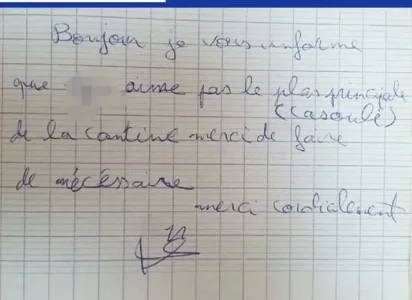 Bonjour je vous informe
que aime pas le plas principale
(Casoulé)
de la cantine merci de faire
de mécéssaire
merci cordialement